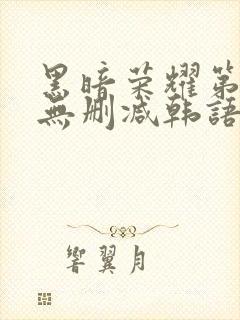 黑暗荣耀第
無删减韩語
響翼月